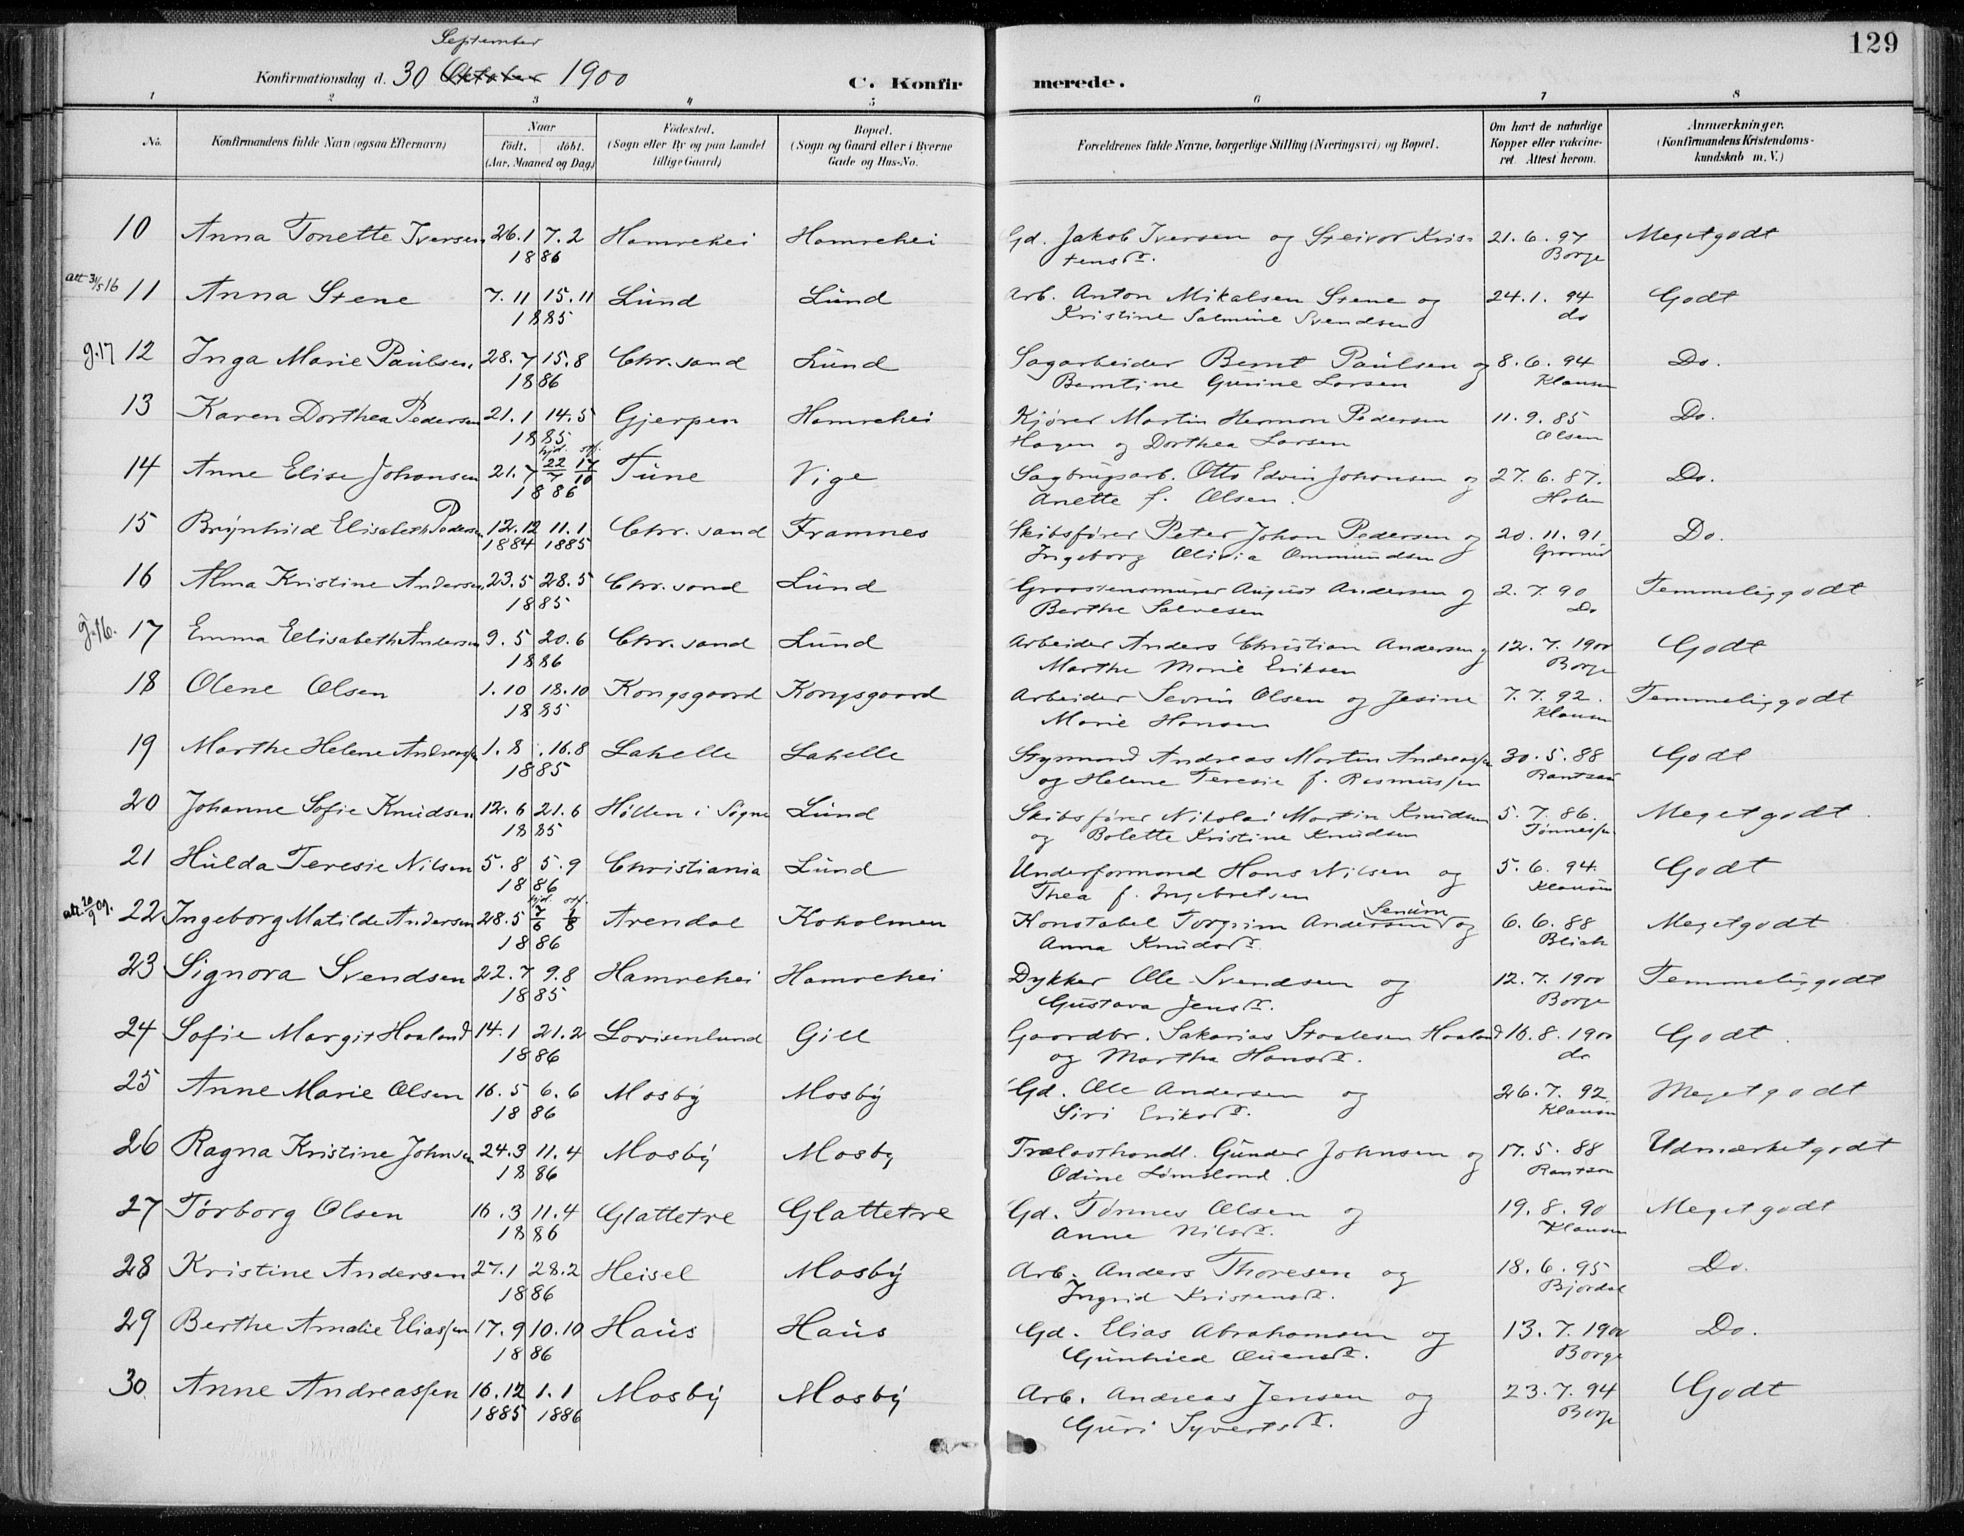 129
September
Konfirmationsdag d. 30 Oktober 1900 C. Konfirmerede.
1 2 3 4 5 6 7 8
No. Konfirmandens fulde Navn (ogsaa Efternavn) Naar født. døbt. (Aar, Maaned og Dag) Fødested. (Sogn eller By og paa Landet tillige Gaard) Bopæl. (Sogn og Gaard eller i Byerne Gade og Hus-No. Forældrenes fulde Navne, borgerlige Stilling (Næringsvei) og Bopæl. Om havt de naturlige Kopper eller vaccineret. Attest herom. Anmærkninger. (Konfirmandens Kristendomskundskab m. V.)
10 Anna Tonette Iversen 26.1 7.2 Hamrehei Hamrehei Gd. Jakob Iversen og Steivor Kris- 21.6.97 Megetgodt
1886 tensd. Borge
att 31/5 16 11 Anna Stene 7.11 15.11 Lund Lund Arb. Anton Mikalsen Stene og 24.1.94 Godt
1885 Kristine Salmine Svendsen do
g.17 12 Inga Marie Paulsen 28.7 15.8 Chr.sand Lund Sagarbeider Bernt Paulsen og 8.6.94 Do.
1886 Berntine Gurine Larsen Klausen
13 Karen Dorthea Pedersen 21.1 14.5 Gjerpen Hamrehei Kjører Martin Herman Pedersen 11.9.85 Do.
1885 Hagen og Dorthea Larsen Olsen
14 Anne Elise Johansen 21.7 hjd. 22/7 off. 17/10 Tune Vige Sagbrugsarb. Otto Edvin Johansen og 27.6.87. Do.
1886 Anette f. Olsen. Holm
15 Brynhild Elisabeth Pedersen 12.12 11.1 Chr.sand Framnes Skibsfører Peter Johan Pedersen og 20.11.91 Do.
1884 1885 Ingeborg Olivia Ommundsen
16 Alma Kristine Andersen 23.5 28.5 Chr.sand Lund Graastensmurer August Andersen og 2.7.90 Temmeliggodt
1885 Berthe Salvesen Do
g.16. 17 Emma Elisabeth Andersen 9.5 20.6 Chr.sand Lund Arbeider Anders Christian Andersen og 12.7.1900 Godt
1886 Marthe Marie Eriksen Borge
18 Olene Olsen 1.10 18.10 Kongsgaard Kongsgaard Arbeider Sevrin Olsen og Jesine 7.7.92. Temmeliggodt
1885 Marie Hansen Klausen
19 Marthe Helene Andreassen 1.8. 16.8 Lahelle Lahelle Styrmand Andreas Martin Andreassen 30.5.88 Godt
1885 og Helene Teresie f. Rasmussen Rantzau
20 Johanne Sofie Knudsen 12.6 21.6 Høllen i Søgne Lund Skibsfører Nikolai Martin Knudsen 5.7.86. Megetgodt.
1885 og Bolette Kristine Knudsen Tønnessen
21 Hulda Teresie Nilsen 5.8 5.9 Christiania Lund Underformand Hans Nilsen og 5.6.94. Godt
1886 Thea f. Ingebretsen Klausen
att. 20/9 09. 22 Ingeborg Matilde Andersen 28.5 hjd. 7/6 off. 1/8 Arendal Kokolmen Konstabel Torgrim Andersen Senum og 6.6.88 Megetgodt
1886 Anna Knudsd. Blich
23 Signora Svendsen 22.7 9.8 Hamrehei Hamrehei Dykker Ole Svendsen og 12.7.1900 Temmeliggodt
1885 Gustava Jensd. Borge
24 Sofie Margit Haaland 14.1 21.2 Lovisenlund Gill Gaardbr. Sakarias Staalesen Haaland 16.8.1900 Godt.
1886 og Marthe Hansd. do
25 Anne Marie Olsen 16.5 6.6 Mosby Mosby Gd. Ole Andersen og 26.7.92. Megetgodt
1886 Siri Eriksd. Klausen
26 Ragna Kristine Johnsen 24.3 11.4 Mosby Mosby Trælasthandl. Gunder Johnsen og 17.5.88 Udmærketgodt
1886 Odine Lømsland. Rantzau
27 Tørborg Olsen 16.3 11.4 Glattetre Glattetre Gd. Tønnes Olsen og 19.8.90 Megetgodt
1886 Anne Nilsd. Klausen
28 Kristine Andersen 27.1 28.2 Heisel Mosby Arb. Anders Thoresen og 18.6.95 Do.
1886 Ingrid Kristensd. Bjordal
29 Berthe Amalie Eliassen 17.9 10.10 Haus Haus Gd. Elias Abrahamsen og 13.7.1900 Do.
1886 Gunhild Ouensd. Borge
30. Anne Andreassen 16.12 1.1 Mosby Mosby Arb. Andreas Jensen og 23.7.94 Godt
1885 1886 Guri Syvertsd. Borge